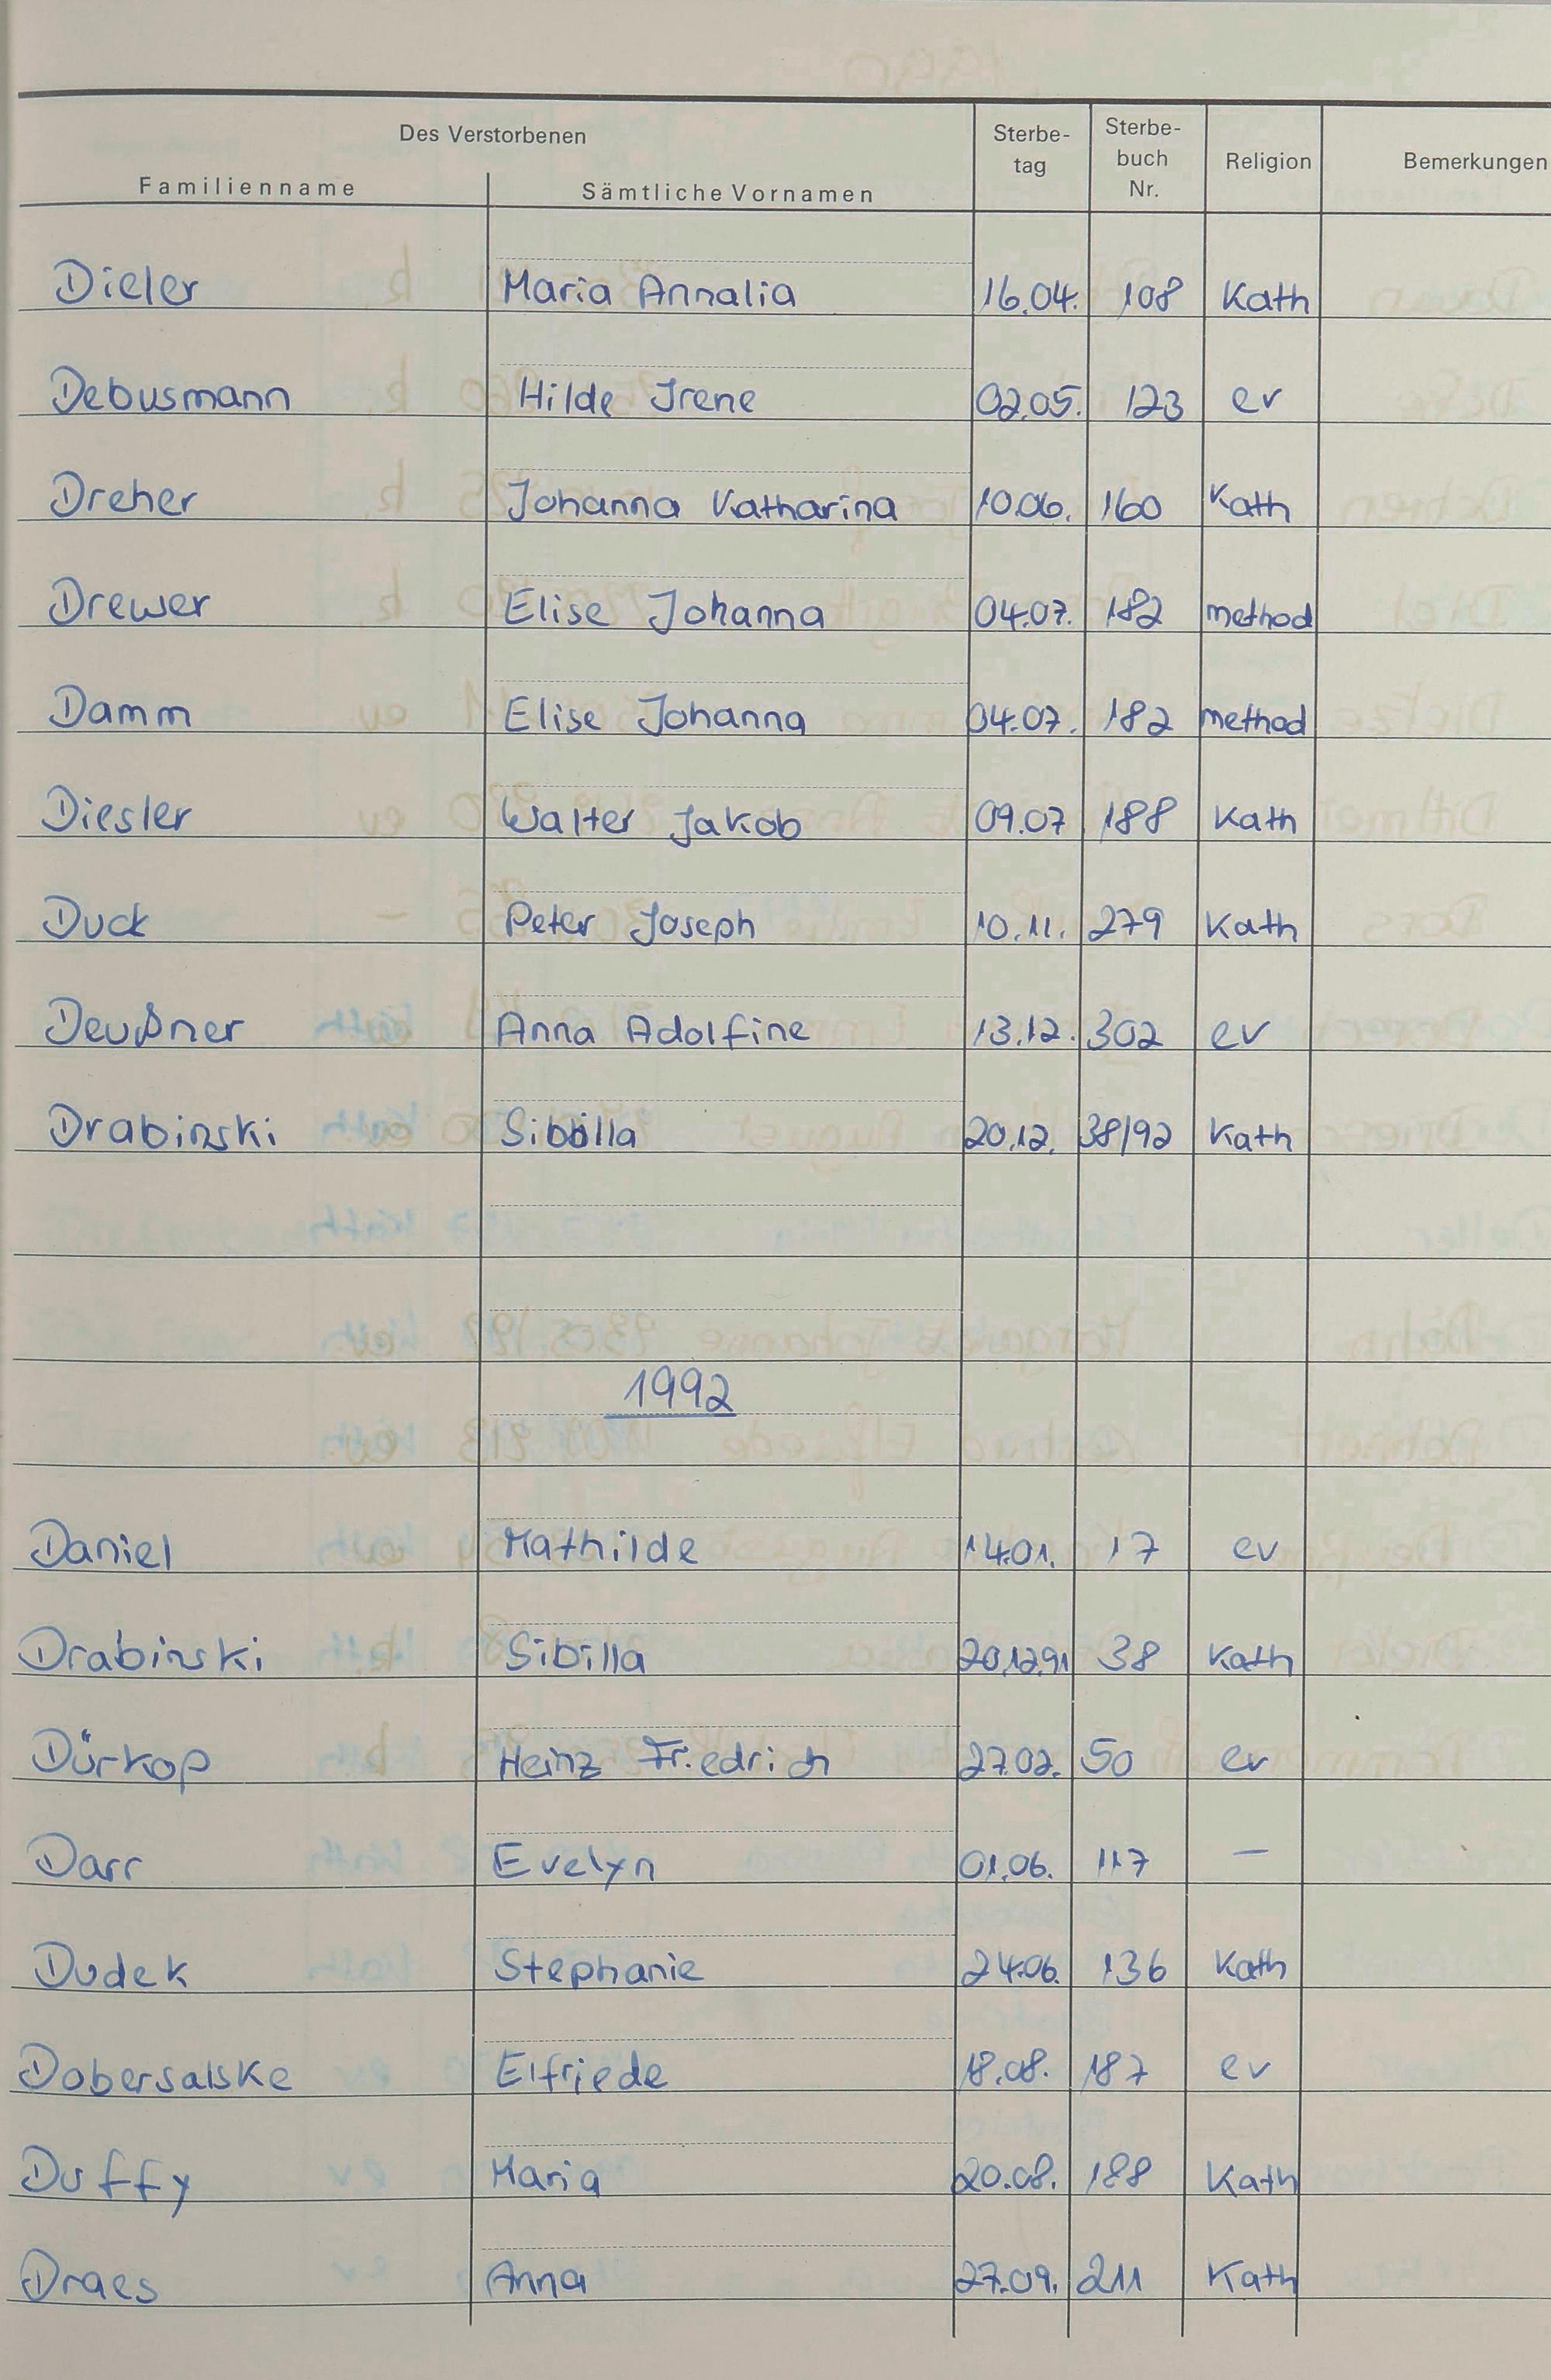 Des Verstorbenen
Familienname Sämtliche Vornamen Sterbe-tag Sterbe-buch Nr. Religion Bemerkungen
Dieler Maria Annalia 16.04. 108 Kath
Debusmann Hilde Irene 02.05. 123 ev
Dreher Johanna Katharina 10.06. 160 Kath
Drewer Elise Johanna 04.07. 182 method
Damm Elise Johanna 04.07. 182 method
Diesler Walter Jakob 09.07 188 Kath
Duck Peter Joseph 10.11. 279 Kath
Deußner Anna Adolfine 13.12. 302 ev
Drabinski Sibilla 20.12. 38/92 Kath
1992
Daniel Mathilde 14.01. 17 ev
Drabinski Sibilla 20.12.91 38 Kath
Dürkop Heinz Friedrich 27.02. 50 ev
Darr Evelyn 01.06. 117 —
Dudek Stephanie 24.06. 136 Kath
Dobersalske Elfriede 18.08. 187 ev
Duffy Maria 20.08. 188 Kath
Draes Anna 27.09. 211 Kath